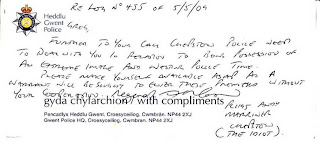 RE LOG Nº 455 of 5/5/09
Heddlu
Gwent
Police
GREG,
FURTHER TO YOUR CALL CHEPSTOW POLICE NEED
TO DEAL WITH YOU IN RELATION TO BEING POSSESSION OF
AN EXTREME IMAGE AND WASTING POLICE TIME.
PLEASE MAKE YOURSELF AVAILABLE ASAP AS A
WARRANT WILL BE SOUGHT TO ENTER THESE PREMISES WITHOUT
YOUR PERMISSION.
gyda chyfarchion / with compliments
Pencadlys Heddlu Gwent, Croesyceiliog, Cwmbrân. NP44 2XJ
Gwent Police HQ, Croesyceiliog, Cwmbran. NP44 2XJ
MARINER
CHEPSTOW
(THE IDIOT).